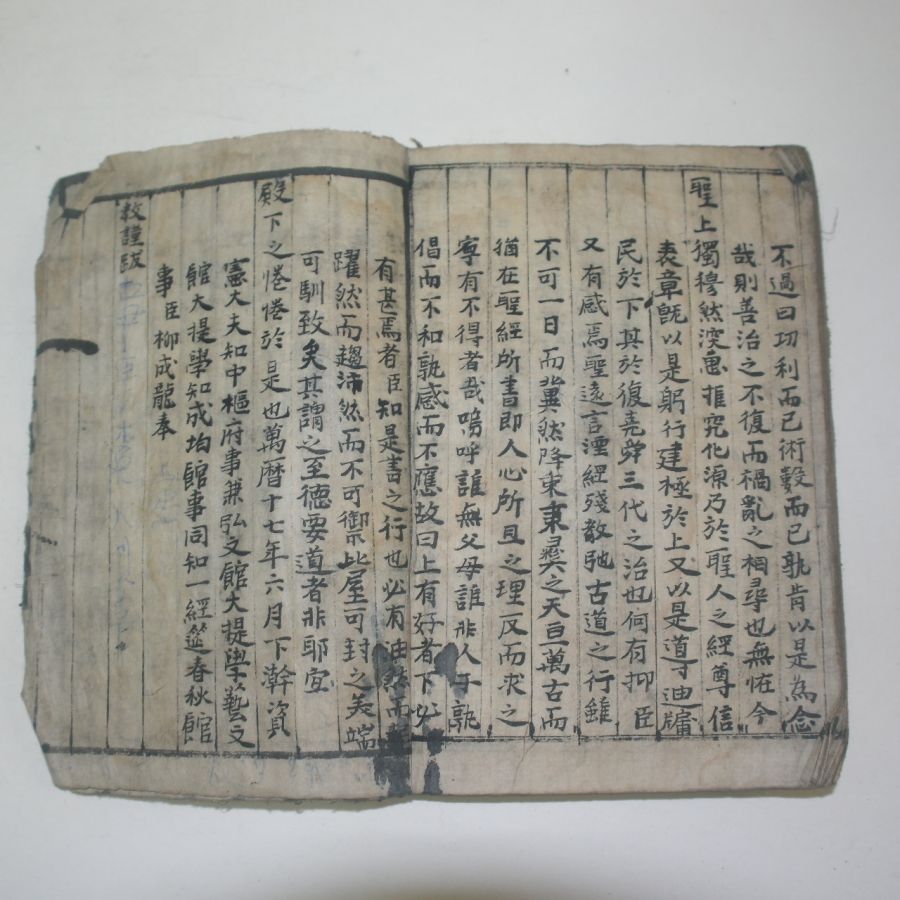 不過曰功利而已術數而已孰肯以是為念
哉則善治之不復而禍亂之相尋也無怪今
聖上獨穆然深思推究化源乃於聖人之經尊信
表章旣以是躬行建極於上又以是導迪牖
民於下其於復堯舜三代之治也何有抑臣
又有感焉聖遠言湮經殘敎弛古道之行雖
不可一日而冀然降衷秉彛之天亘萬古而
猶在聖經所書即人心所具之理反而求之
寧有不得者哉嗚呼誰無父母誰非人子孰
倡而不和孰感而不應故曰上有好者下必
有甚焉者臣知是書之行也必有油然而
躍然而趨沛然而不可禦比屋可封之美端
可馴致矣其謂之至德要道者非耶宜
殿下之惓惓於是也萬曆十七年六月下澣資
憲大夫知中樞府事兼弘文館大提學藝文
館大提學知成均館事同知經筵春秋館
事臣柳成龍奉
教謹跋